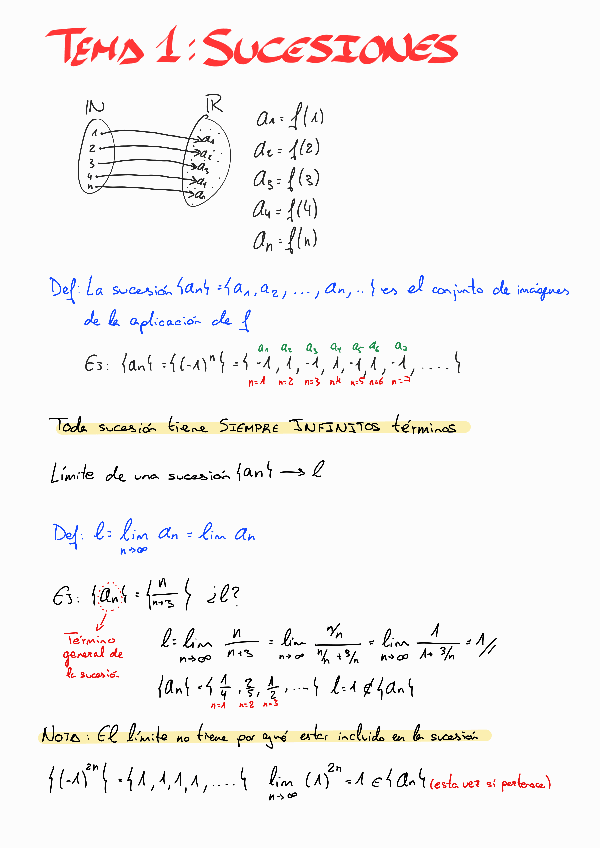 TEMA 1: SUCESIONES
IN IR
1 a1
2 a2
3 a3
4 a4
n an
a1 = f(1)
a2 = f(2)
a3 = f(3)
a4 = f(4)
an = f(n)
Def: La sucesión {an} = {a1, a2, ..., an, ..} es el conjunto de imágenes
de la aplicación de f
a1 a2 a3 a4 a5 a6 a7
Ej: {an} = {(-1)^n} = {-1, 1, -1, 1, -1, 1, -1, ....}
n=1 n=2 n=3 n=4 n=5 n=6 n=7
Toda sucesión tiene SIEMPRE INFINITOS términos
Límite de una sucesión {an} → l
Def: l = lim an = lim an
n→∞
Ej: {an} = {n/(n+3)} ¿l?
Término
general de
la sucesión
l = lim n/(n+3) = lim (n/n)/(n/n + 3/n) = lim 1/(1 + 3/n) = 1//
n→∞ n→∞ n→∞
{an} = {1/4, 2/5, 1/2, ...} l = 1 ∉ {an}
n=1 n=2 n=3
NOTA: El límite no tiene por qué estar incluido en la sucesión
{(-1)^2n} = {1, 1, 1, 1, ....} lim (1)^2n = 1 ∈ {an} (esta vez sí pertenece)
n→∞